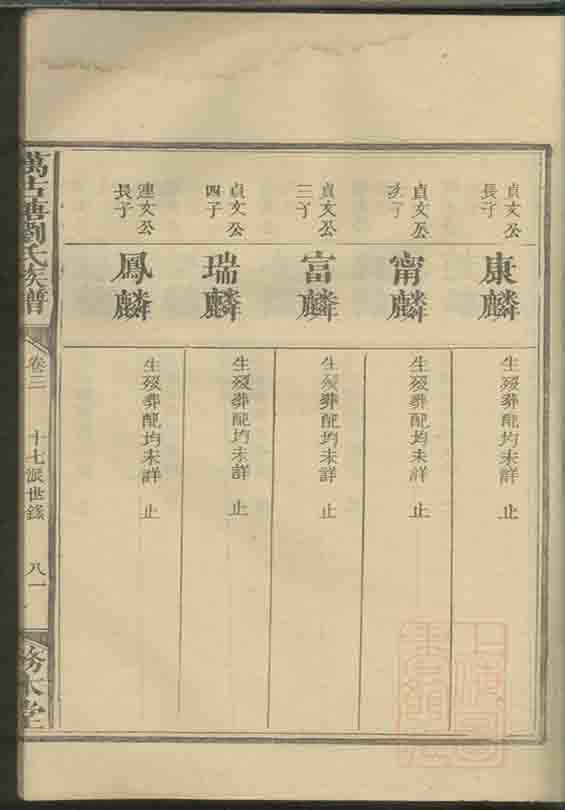 貞文公
長子
康麟
生歿葬配均未詳 止
貞文公
次子
甯麟
生歿葬配均未詳 止
貞文公
三子
富麟
生歿葬配均未詳 止
貞文公
四子
瑞麟
生歿葬配均未詳 止
連文公
長子
鳳麟
生歿葬配均未詳 止
萬古塘劉氏族譜
卷三
十七派世錄
八一
務本堂